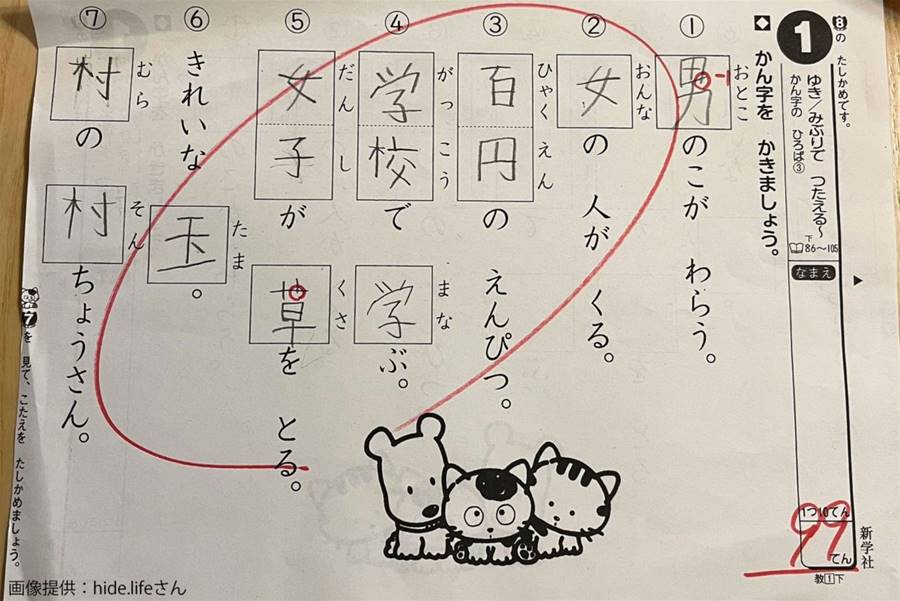 8の たしかめです。
1
ゆき/みぶりで つたえる～
かん字の ひろば③
下
86～105
なまえ
1つ10てん
99
てん
新学社
教1下
◆ かん字を かきましょう。
①
おとこ
男のこが わらう。
-1
②
おんな
女の 人が くる。
③
ひゃく えん
百円の えんぴつ。
④
がっ こう まな
学校で 学ぶ。
⑤
だん し くさ
女子が 草を とる。
⑥
たま
きれいな 玉。
⑦
むら そん
村の 村ちょうさん。
7を 見て、こたえを たしかめましょう。
画像提供：hide.lifeさん